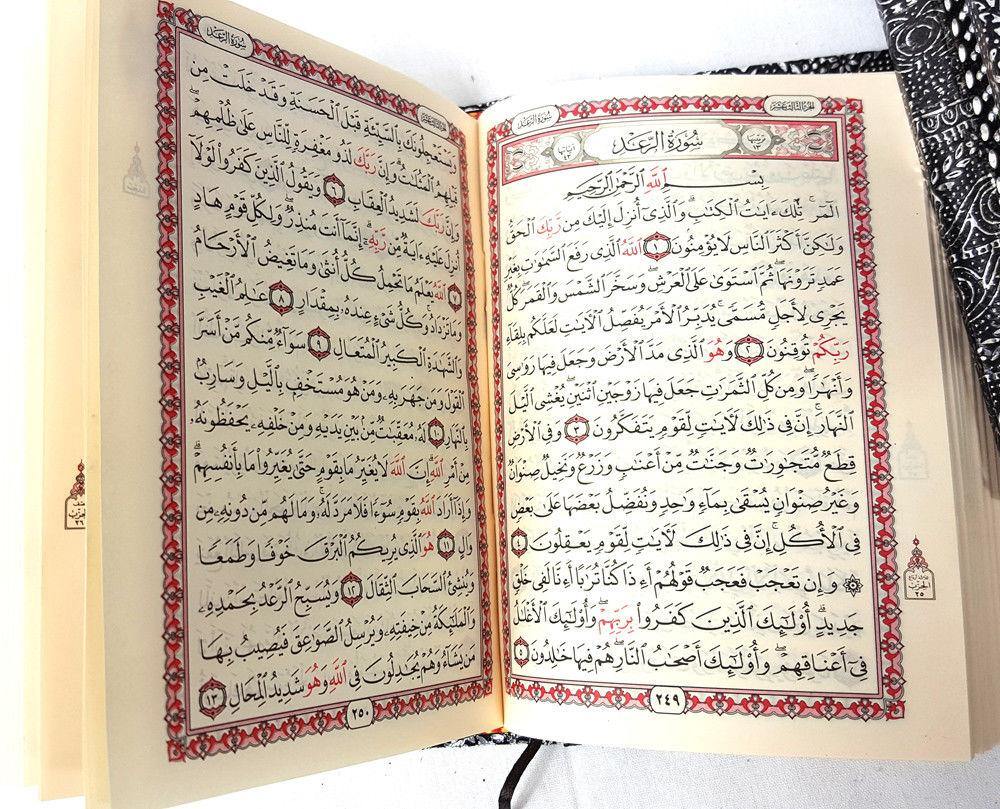 سُورَةُ الرَّعْدِ
الجزء الثالث عشر
سُورَةُ الرَّعْدِ
بِسْمِ اللَّهِ الرَّحْمَٰنِ الرَّحِيمِ
الٓمٓر ۚ تِلْكَ ءَايَٰتُ ٱلْكِتَٰبِ ۗ وَٱلَّذِىٓ أُنزِلَ إِلَيْكَ مِن رَّبِّكَ ٱلْحَقُّ
وَلَٰكِنَّ أَكْثَرَ ٱلنَّاسِ لَا يُؤْمِنُونَ ١ ٱللَّهُ ٱلَّذِى رَفَعَ ٱلسَّمَٰوَٰتِ بِغَيْرِ
عَمَدٍ تَرَوْنَهَا ۖ ثُمَّ ٱسْتَوَىٰ عَلَى ٱلْعَرْشِ ۖ وَسَخَّرَ ٱلشَّمْسَ وَٱلْقَمَرَ ۖ كُلٌّ
يَجْرِى لِأَجَلٍ مُّسَمًّى ۚ يُدَبِّرُ ٱلْأَمْرَ يُفَصِّلُ ٱلْءَايَٰتِ لَعَلَّكُم بِلِقَآءِ
رَبِّكُمْ تُوقِنُونَ ٢ وَهُوَ ٱلَّذِى مَدَّ ٱلْأَرْضَ وَجَعَلَ فِيهَا رَوَٰسِىَ
وَأَنْهَٰرًا ۖ وَمِن كُلِّ ٱلثَّمَرَٰتِ جَعَلَ فِيهَا زَوْجَيْنِ ٱثْنَيْنِ ۖ يُغْشِى ٱلَّيْلَ
ٱلنَّهَارَ ۚ إِنَّ فِى ذَٰلِكَ لَءَايَٰتٍ لِّقَوْمٍ يَتَفَكَّرُونَ ٣ وَفِى ٱلْأَرْضِ
قِطَعٌ مُّتَجَٰوِرَٰتٌ وَجَنَّٰتٌ مِّنْ أَعْنَٰبٍ وَزَرْعٌ وَنَخِيلٌ صِنْوَانٌ
وَغَيْرُ صِنْوَانٍ يُسْقَىٰ بِمَآءٍ وَٰحِدٍ وَنُفَضِّلُ بَعْضَهَا عَلَىٰ بَعْضٍ
فِى ٱلْأُكُلِ ۚ إِنَّ فِى ذَٰلِكَ لَءَايَٰتٍ لِّقَوْمٍ يَعْقِلُونَ ٤
۞ وَإِن تَعْجَبْ فَعَجَبٌ قَوْلُهُمْ أَءِذَا كُنَّا تُرَٰبًا أَءِنَّا لَفِى خَلْقٍ
جَدِيدٍ ۗ أُو۟لَٰٓئِكَ ٱلَّذِينَ كَفَرُوا۟ بِرَبِّهِمْ ۖ وَأُو۟لَٰٓئِكَ ٱلْأَغْلَٰلُ
فِىٓ أَعْنَاقِهِمْ ۖ وَأُو۟لَٰٓئِكَ أَصْحَٰبُ ٱلنَّارِ ۖ هُمْ فِيهَا خَٰلِدُونَ ٥
٢٤٩
سُورَةُ الرَّعْدِ
الجزء الثالث عشر
وَيَسْتَعْجِلُونَكَ بِٱلسَّيِّئَةِ قَبْلَ ٱلْحَسَنَةِ وَقَدْ خَلَتْ مِن
قَبْلِهِمُ ٱلْمَثُلَٰتُ ۗ وَإِنَّ رَبَّكَ لَذُو مَغْفِرَةٍ لِّلنَّاسِ عَلَىٰ ظُلْمِهِمْ ۖ
وَإِنَّ رَبَّكَ لَشَدِيدُ ٱلْعِقَابِ ٦ وَيَقُولُ ٱلَّذِينَ كَفَرُوا۟ لَوْلَآ
أُنزِلَ عَلَيْهِ ءَايَةٌ مِّن رَّبِّهِۦٓ ۗ إِنَّمَآ أَنتَ مُنذِرٌ ۖ وَلِكُلِّ قَوْمٍ هَادٍ
٧ ٱللَّهُ يَعْلَمُ مَا تَحْمِلُ كُلُّ أُنثَىٰ وَمَا تَغِيضُ ٱلْأَرْحَامُ
وَمَا تَزْدَادُ ۖ وَكُلُّ شَىْءٍ عِندَهُۥ بِمِقْدَارٍ ٨ عَٰلِمُ ٱلْغَيْبِ
وَٱلشَّهَٰدَةِ ٱلْكَبِيرُ ٱلْمُتَعَالِ ٩ سَوَآءٌ مِّنكُم مَّنْ أَسَرَّ
ٱلْقَوْلَ وَمَن جَهَرَ بِهِۦ وَمَنْ هُوَ مُسْتَخْفٍۭ بِٱلَّيْلِ وَسَارِبٌۢ
بِٱلنَّهَارِ ١٠ لَهُۥ مُعَقِّبَٰتٌ مِّنۢ بَيْنِ يَدَيْهِ وَمِنْ خَلْفِهِۦ يَحْفَظُونَهُۥ
مِنْ أَمْرِ ٱللَّهِ ۗ إِنَّ ٱللَّهَ لَا يُغَيِّرُ مَا بِقَوْمٍ حَتَّىٰ يُغَيِّرُوا۟ مَا بِأَنفُسِهِمْ ۗ
وَإِذَآ أَرَادَ ٱللَّهُ بِقَوْمٍ سُوٓءًا فَلَا مَرَدَّ لَهُۥ ۚ وَمَا لَهُم مِّن دُونِهِۦ مِن
وَالٍ ١١ هُوَ ٱلَّذِى يُرِيكُمُ ٱلْبَرْقَ خَوْفًا وَطَمَعًا
وَيُنشِئُ ٱلسَّحَابَ ٱلثِّقَالَ ١٢ وَيُسَبِّحُ ٱلرَّعْدُ بِحَمْدِهِۦ
وَٱلْمَلَٰٓئِكَةُ مِنْ خِيفَتِهِۦ وَيُرْسِلُ ٱلصَّوَٰعِقَ فَيُصِيبُ بِهَا
مَن يَشَآءُ وَهُمْ يُجَٰدِلُونَ فِى ٱللَّهِ وَهُوَ شَدِيدُ ٱلْمِحَالِ ١٣
٢٥٠